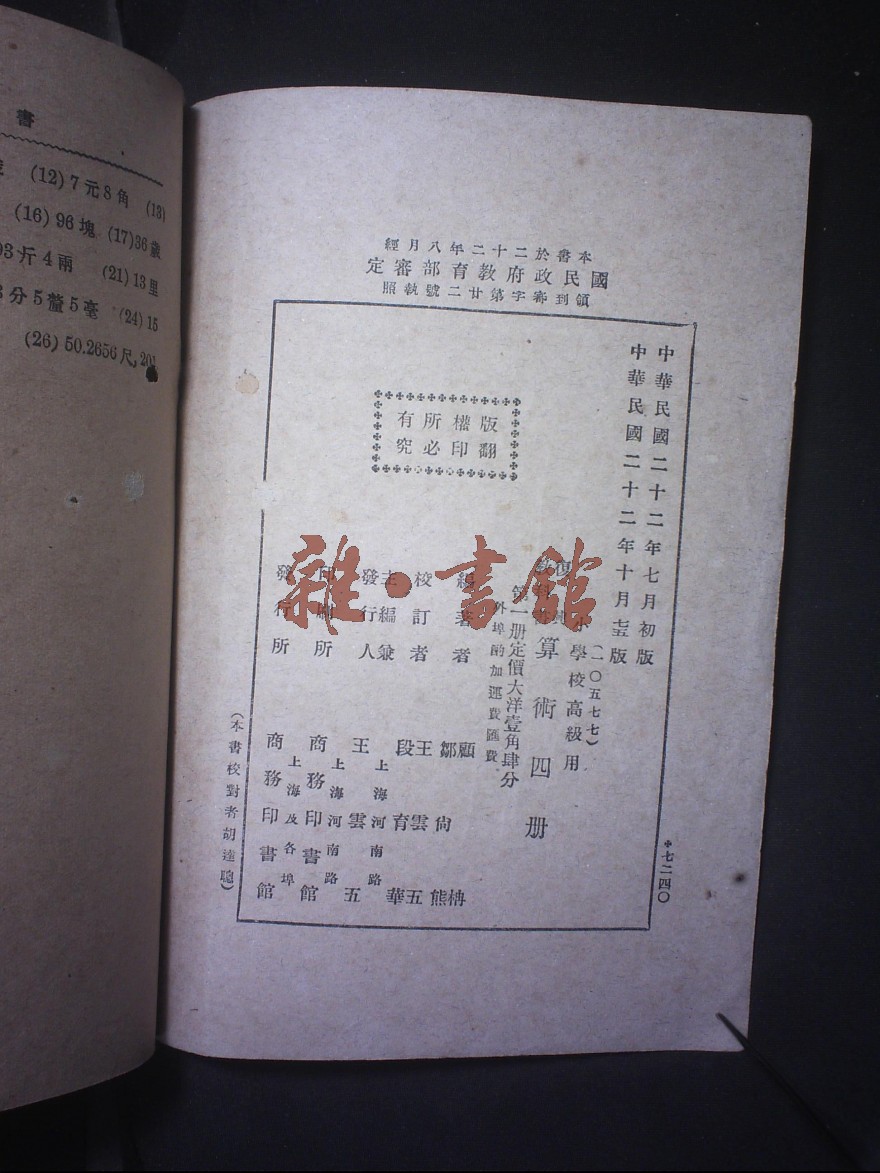 書
(12) 7元8角 (13)
(16) 96塊 (17) 36歲
93斤4兩 (21) 13里
分5釐5毫 (24) 15
(26) 50.2656尺, 201
本書於二十二年八月經
國民政府教育部審定
領到審字第廿二號執照
中華民國二十二年七月初版
中華民國二十二年十月
版
(一〇五七七)
小學校高級用
復興教科書
算術四册
第一册定價大洋壹角肆分
外埠酌加運費匯費
版權所有
翻印必究
編著者 顧 鄒尙熊
校訂者 王雲五 段育華
主編兼發行人 王雲五
上海河南路
印刷所 商務印書館
上海河南路
發行所 商務印書館
上海及各埠
(本書校對者胡達聰)
七二四〇
雜·書館